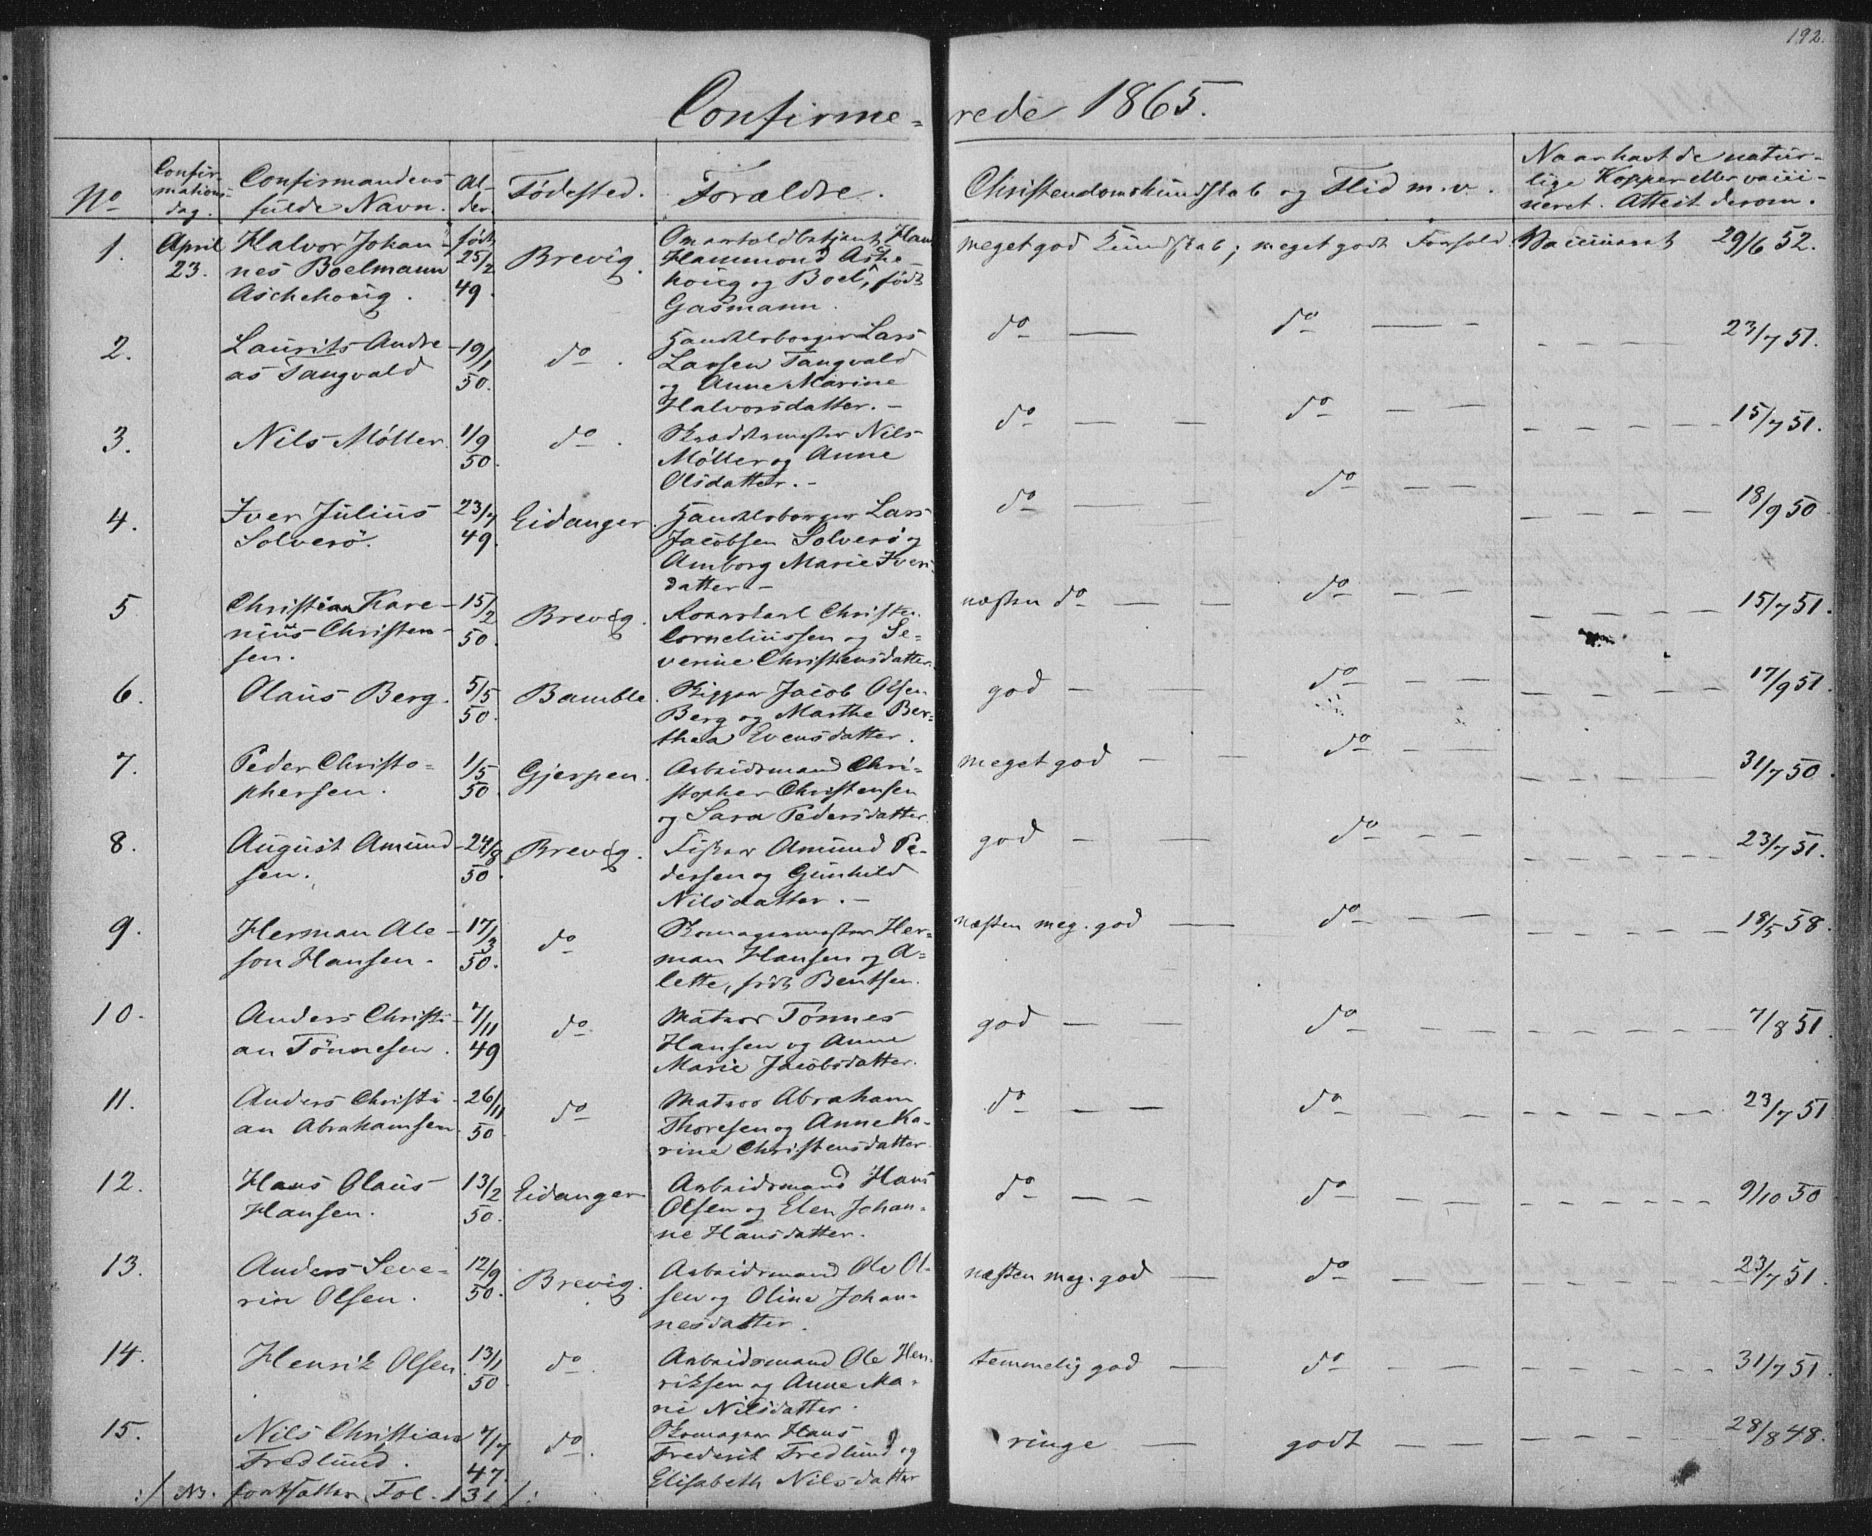 192.
Confirme= rede 1865.
No
Confir-
mations-
dag.
Confirmandens
fulde Navn.
Al-
der.
Fødested.
Forældre.
Christendomskundskab og Flid m.v.
Naar havt de natur-
lige Kopper eller vacci-
neret. Attest derom.
1. April Halvor Johan- født Brevig.
23. nes Boelmann 25/2
Aschehoug. 49.
Hans
Hammond Asche-
houg og Boel, født
Gasmann.
meget god Kundskab; meget godt Forhold Vaccineret 29/6 52.
2. Laurits Andre- 19/1 do.
as Tangvald 50.
Handelsborger Lars
Larsen Tangvald
og Anne Marine
Halvorsdatter. -
do — do — - - - - 23/7 51.
3. Nils Møller. 1/9 do.
50.
Skræddermester Nils
Møller og Anne
Olsdatter. -
do — — do — — - - - - 15/7 51.
4. Iver Julius 23/7 Eidanger.
Solverö. 49.
Handelsborger Lars
Jacobsen Solverö og
Amborg Marie Ivers-
datter -
do — do — — - - - - 18/9 50
5 Christian Kare- 15/2 Brevig.
nius Christen- 50.
sen.
Christen
Corneliussen og Se-
verine Christensdatter.
næsten do — — do — — - - - - 15/7 51.
6. Olaus Berg. 5/5 Bamble.
50.
Skipper Jacob Olsen
Berg og Marthe Ber-
thea Evensdatter.
god — — do — — - - - - 17/9 51.
7. Peder Christo- 1/5 Gjerpen.
phersen. 50.
Arbeidsmand Chri-
stopher Christensen
og Sara Pedersdatter.
meget god — — do — — - - - - 31/7 50.
8. August Amund- 24/8 Brevig.
sen. 50.
Fisker Amund Pe-
dersen og Gunhild
Nilsdatter. -
god — — do — — - - - - 23/7 51.
9. Herman Ale- 17/3 do
son Hansen. 50.
Skomagermester Her-
man Hansen og A-
lette, født Bentsen.
næsten meg. god — do — — - - - - 18/5 58.
10. Anders Christi- 7/11 do.
an Tönnesen. 49
Matros Tönnes
Hansen og Anne
Marie Jacobsdatter.
god — — do — — - - - - 7/8 51.
11. Anders Christi- 26/11 do
an Abrahamsen. 50.
Matros Abraham
Thoresen og Anne Ka-
rine Christensdatter.
do — — do — — - - - - 23/7 51
12. Hans Olaus 13/2 Eidanger.
Hansen. 50.
Arbeidsmand Hans
Olsen og Elen Johan-
ne Hansdatter.
do — — do — — - - - - 9/10 50
13. Anders Seve- 12/9 Brevig.
rin Olsen. 50.
Arbeidsmand Ole Ol-
sen og Oline Johan-
nesdatter.
næsten meg. god — do — — - - - - 23/7 51.
14. Henrik Olsen 13/1 do.
50.
Arbeidsmand Ole Hen-
riksen og Anne Ma-
rie Nilsdatter.
temmelig god — do — — - - - - 31/7 51.
15. Nils Christian 7/7 do.
Fredlund. 47.
Skomager Hans
Frederik Fredlund og
Elisabeth Nilsdatter
ringe — godt — — - - - - 28/8 48.
:/ No. fortsættes Fol. 131 /: